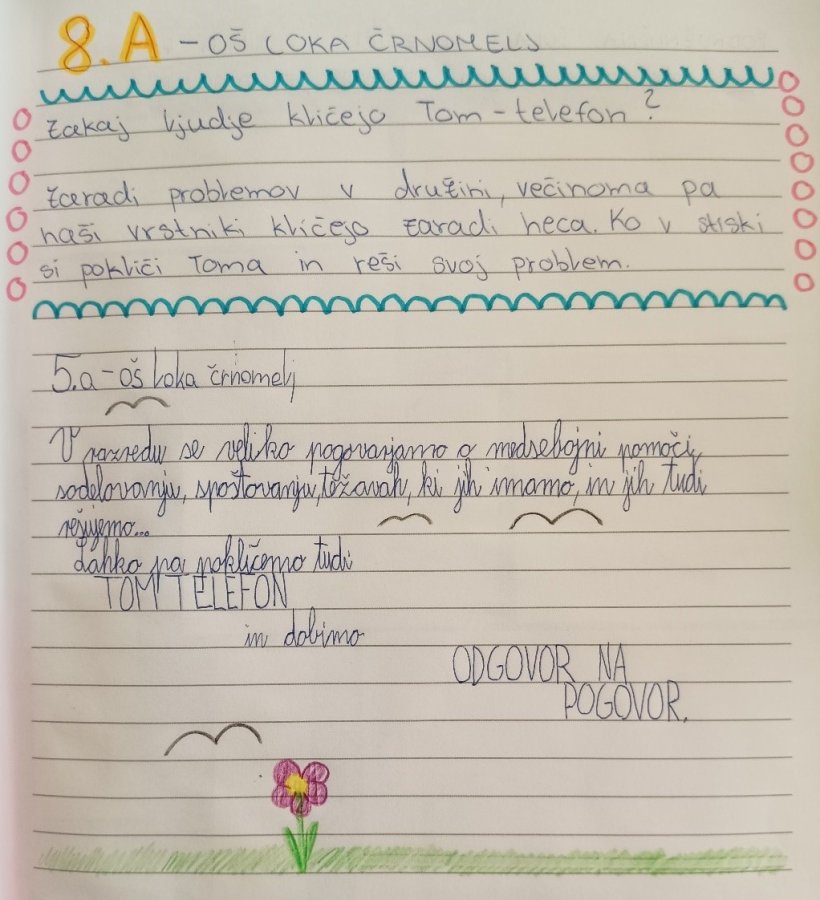 8.A - OŠ LOKA ČRNOMELJ
Zakaj ljudje kličejo Tom-telefon?
Zaradi problemov v družini, večinoma pa
naši vrstniki kličejo zaradi heca. Ko v stiski
si pokliči Toma in reši svoj problem.
5.a - oš Loka črnomelj
V razredu se veliko pogovarjamo o medsebojni pomoči,
sodelovanju, spoštovanju, težavah, ki jih imamo, in jih tudi
rešujemo...
Lahko pa pokličemo tudi
TOM TELEFON
in dobimo
ODGOVOR NA
POGOVOR.